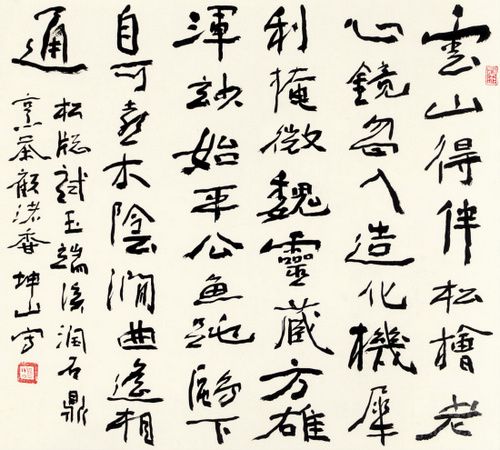 雲山得伴松檜老
心鏡忽入造化機犀
利掩微魏靈蔵方雄
渾妙始平公魚跳鷗下
自可喜木陰澗曲遙相
通
松牕試玉端溪潤石鼎
烹茶顧渚香 坤山